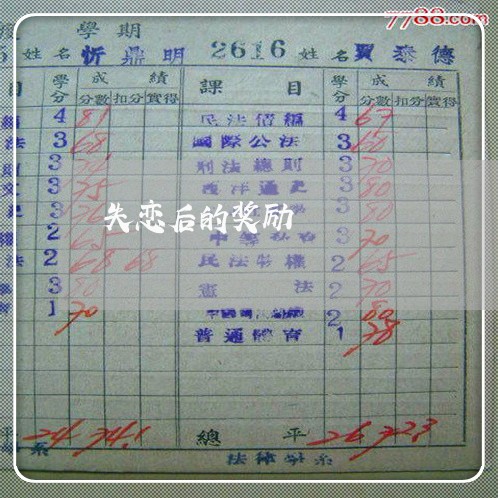 7788.com
學期
5 姓名 忻鼎明 2616 姓名 賈泰德
目 學分 成績 課目 學分 成績
分數 扣分 實得 分數 扣分 實得
4 81 民法債編 4 67
法 3 68 國際公法 3 60
3 刑法總則 3 70
3 75 西洋通史 3 80
3 3 80
失恋后的奖励
2 3 70
法 2 68 68 民法物權 2 65
3 80 憲法 2 70
1 70 2 80
普通體育 1 78
平 24 74.1 總平 26 72.3
系 法律學系